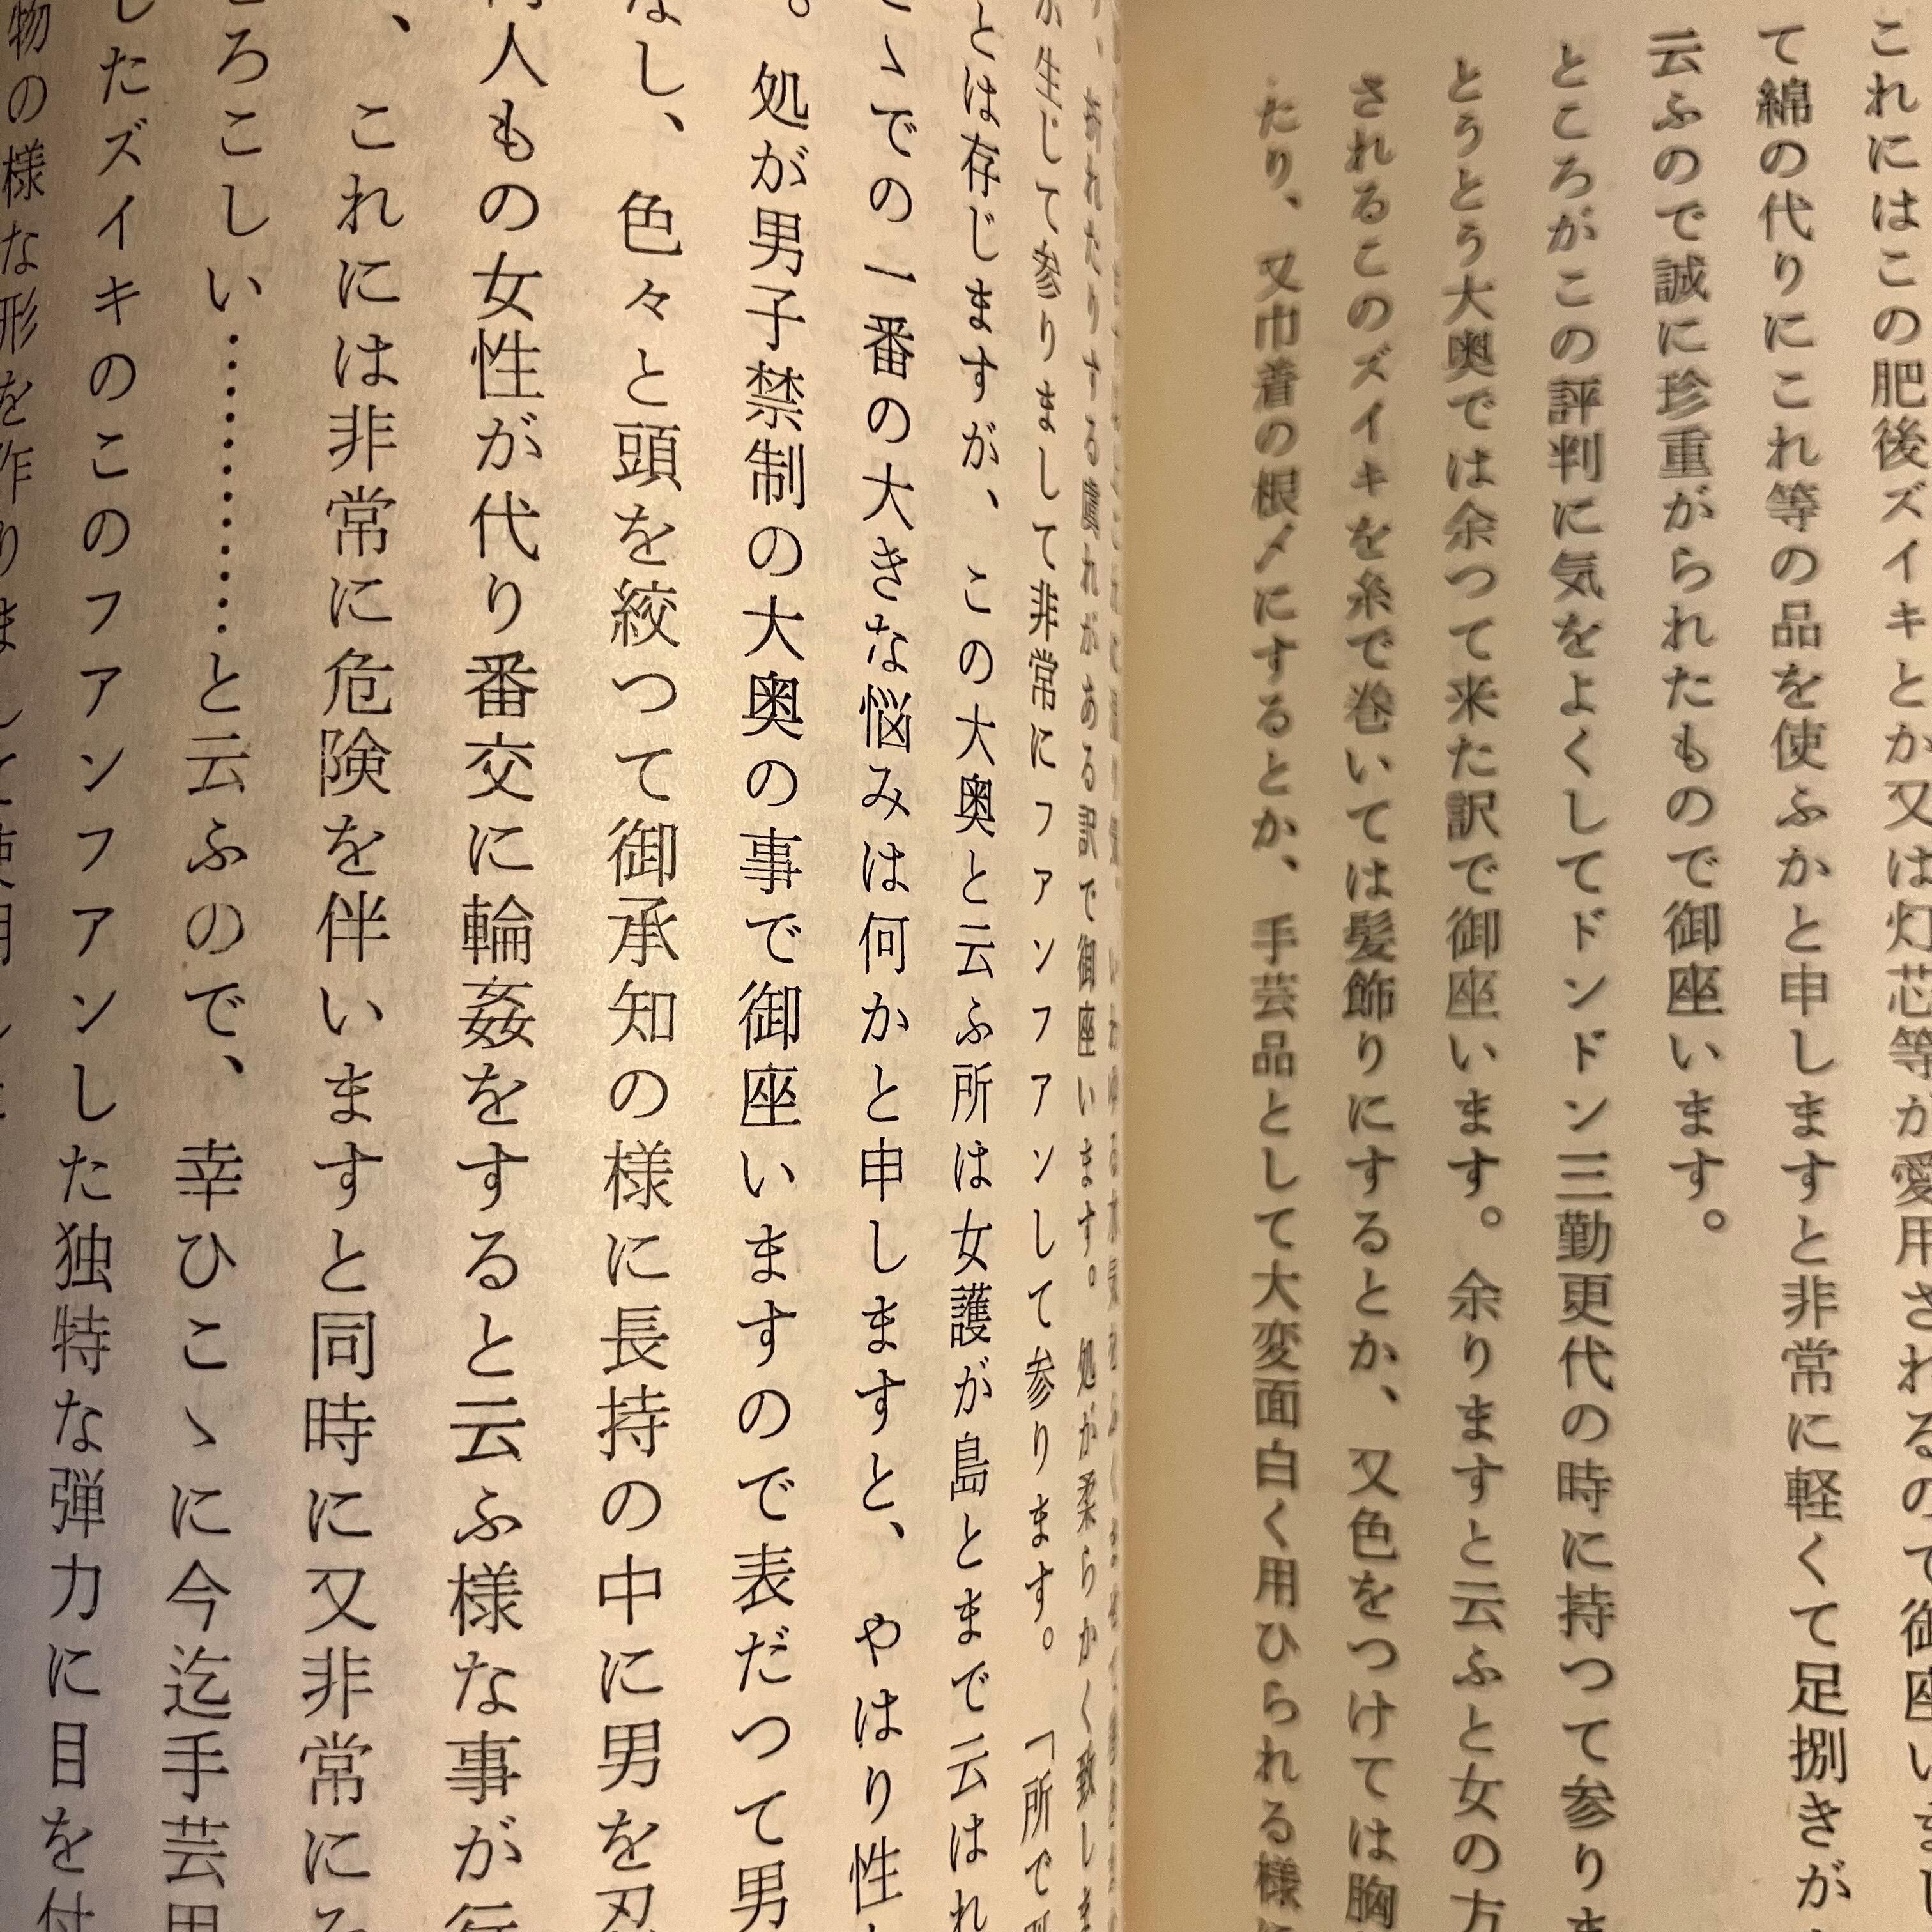 これにはこの肥後ズイキとか又は灯芯等が愛用されるので御座いま
て綿の代りにこれ等の品を使ふかと申しますと非常に軽くて足捌きが
云ふので誠に珍重がられたもので御座います。
ところがこの評判に気をよくしてドンドン三勤更代の時に持つて参りま
とうとう大奥では余つて来た訳で御座います。余りますと云ふと女の方
されるこのズイキを糸で巻いては髪飾りにするとか、又色をつけては胸
たり、又巾着の根〆にするとか、手芸品として大変面白く用ひられる様に
折れたりする虞れがある訳で御座います。処が柔らかく致しま
が生じて参りまして非常にファンファンして参ります。「所で
とは存じますが、この大奥と云ふ所は女護が島とまで云はれ
こゝでの一番の大きな悩みは何かと申しますと、やはり性
。処が男子禁制の大奥の事で御座いますので表だつて男
なし、色々と頭を絞つて御承知の様に長持の中に男を忍
人もの女性が代り番交に輪姦をすると云ふ様な事が行
、これには非常に危険を伴いますと同時に又非常にろ
ころこしい…………と云ふので、幸ひこゝに今迄手芸用
したズイキのこのフアンフアンした独特な弾力に目を付
物の様な形を作りまして使用し